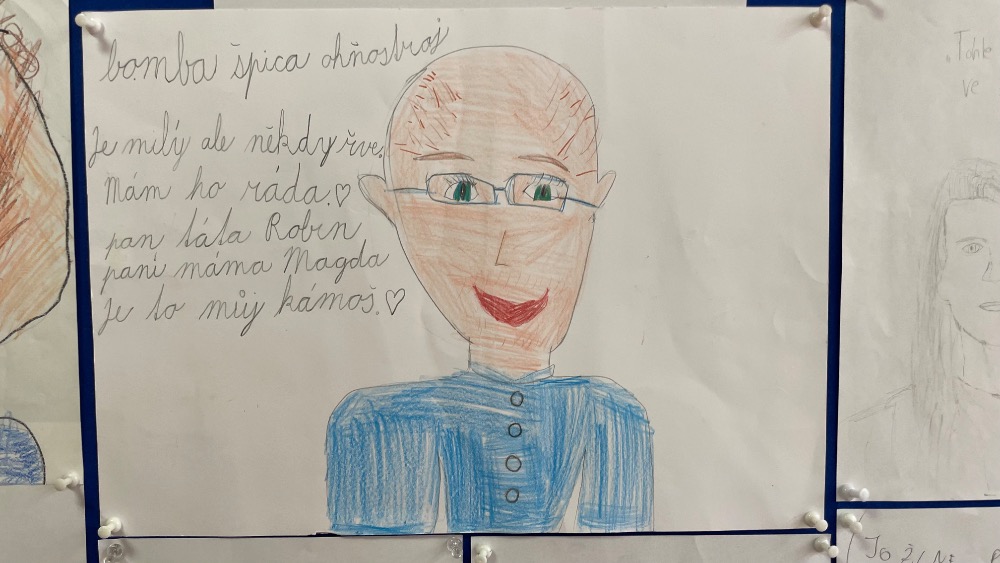 bomba špica ohňostroj
Je milý ale někdy řve.
Mám ho ráda.♡
pan táta Robin
paní máma Magda
Je to můj kámoš.♡
„Tohle
ve